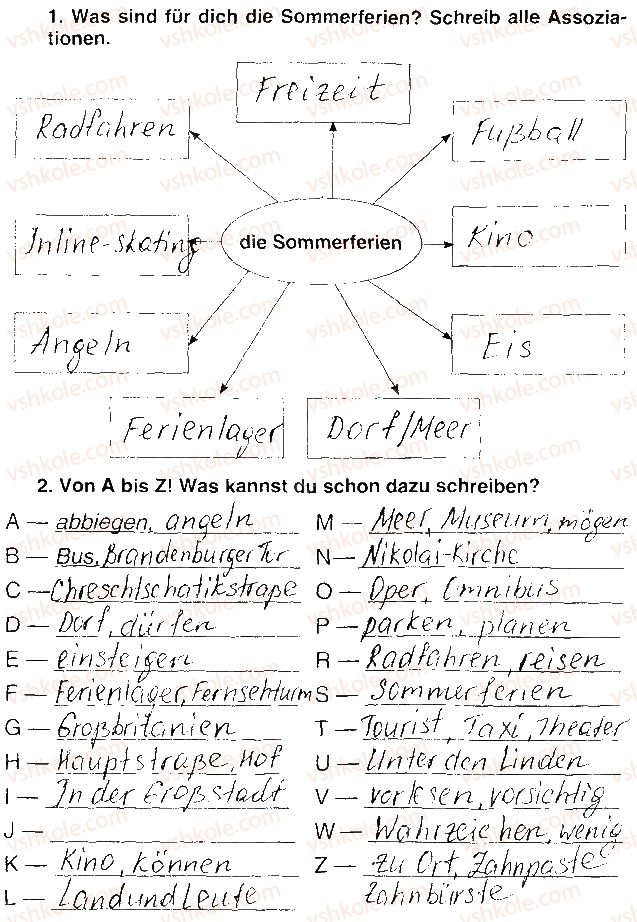 1. Was sind für dich die Sommerferien? Schreib alle Assozia-
tionen.
Freizeit
Radfahren
Fußball
Inline-skating
die Sommerferien
Kino
Angeln
Eis
Ferienlager
Dorf/Meer
2. Von A bis Z! Was kannst du schon dazu schreiben?
A — abbiegen, angeln
B — Bus, Brandenburger Tur
C — Chreschtschatikstraße
D — Dorf, dürfen
E — einsteigen
F — Ferienlager, Fernsehturm
G — Großbritanien
H — Hauptstraße, Hof
I — In der Großstadt
J —
K — Kino, können
L — Land und Leute
M — Meer, Museum, mögen
N — Nikolai-Kirche
O — Oper, Omnibus
P — parken, planen
R — Radfahren, reisen
S — Sommerferien
T — Tourist, Taxi, Theater
U — Unter den Linden
V — vorlesen, vorsichtig
W — Wahrzeichen, wenig
Z — zu Ort, Zahnpaste
Zahnbürste